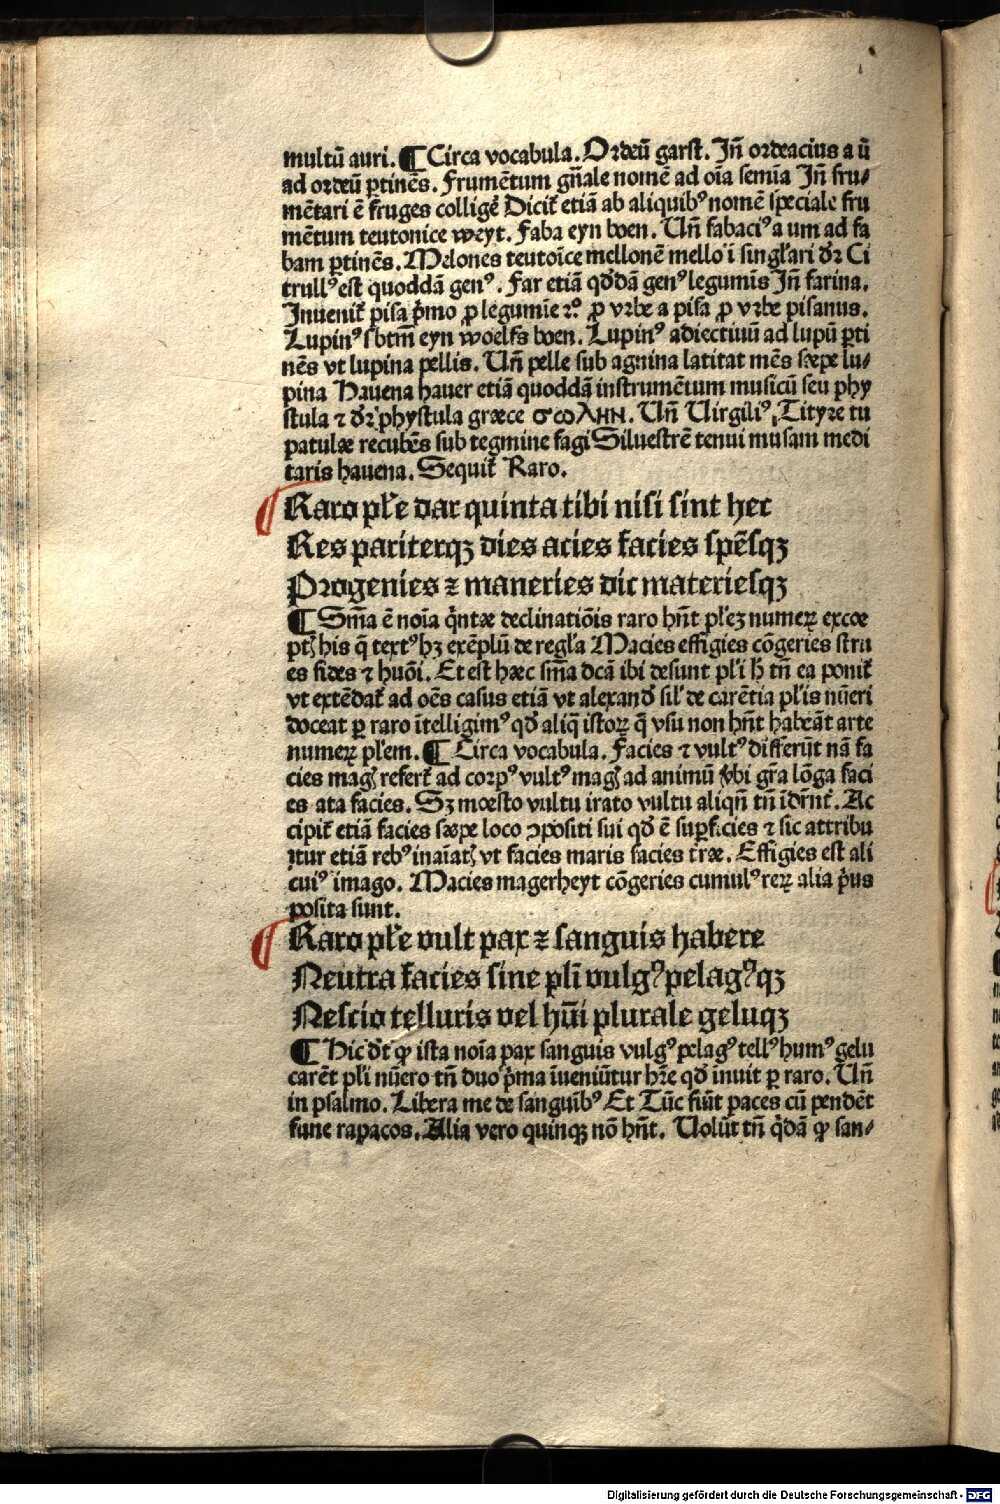 multū auri. ¶ Circa vocabula. Ordeū garst. Jn̄ ordeacius a ū
ad ordeū ꝑtinēs. Frumētum gn̄ale nomē ad oīa semīa Jn̄ fru⸗
mētari ē fruges colligē Dicit᷑ etiā ab aliquibꝰ nomē speciale fru
mētum teutonice weyt. Faba eyn boen. Un̄ fabaciꝰ a um ad fa
bam ꝑtinēs. Melones teutoīce mellonē mello ī singl̄ari dr̄ Ci
trullꝰ est quoddā genꝰ. Far etiā qd̄dā genꝰ legumīs Jn̄ farina.
Jnuenit᷑ pisa p̄mo ꝓ legumīe ⁊c̄ ꝓ vrbe a pisa ꝓ vrbe pisanus.
Lupinꝰ sb̄tm̄ eyn woelfs boen. Lupinꝰ adiectiuū ad lupū ꝑti
nēs vt lupina pellis. Un̄ pelle sub agnina latitat mēs sæpe lu⸗
pina Hauena hauer etiā quoddā instrumētum musicū seu phy
stula ⁊ dr̄ phystula græce σωλην. Un̄ Uirgiliꝰ, Tityre tu
patulæ recubēs sub tegmine fagi Siluestrē tenui musam medi
taris hauena. Sequit᷑ Raro.
Raro pl̄e dat quinta tibi nisi sint hec
Res pariterqꝫ dies acies facies spēsqꝫ
Progenies ⁊ maneries dic materiesqꝫ
¶ Sm̄a ē noīa q̄ntæ declinatiōis raro hn̄t pl̄eꝫ numeꝝ excoe
pt̄ his q̄ textꝰ hꝫ exēplū de regl̄a Macies effigies cōgeries stru
es fides ⁊ huōi. Et est hæc sm̄a dc̄a ibi desunt pl̄i h̄ tn̄ ea ponit᷑
vt extēdat᷑ ad oēs casus etiā vt alexand̄ sil̄ de carētia pl̄is nūeri
doceat ꝑ raro ītelligimꝰ qd̄ aliq̄ istoꝝ q̄ vsu non hn̄t habeāt arte
numeꝝ pl̄em. ¶ Circa vocabula. Facies ⁊ vultꝰ differūt nā fa
cies maḡ refert᷑ ad corpꝰ vultꝰ maḡ ad animū v̄bi gr̄a lōga faci
es ata facies. Sꝫ moesto vultu irato vultu aliqn̄ tn̄ īdr̄nt᷑. Ac
cipit᷑ etiā facies sæpe loco ꝯpositi sui qd̄ ē suꝑficies ⁊ sic attribu
itur etiā rebꝰ inaīat̄ vt facies maris facies tr̄æ. Effigies est ali
cuiꝰ imago. Macies magerheyt cōgeries cumulꝰ reꝝ alia p̄us
posita sunt.
Raro pl̄e vult pax ⁊ sanguis habere
Neutra facies sine pl̄i vulgꝰ pelagꝰqꝫ
Nescio telluris vel hūi plurale geluqꝫ
¶ Hic dt̄ ꝙ ista noīa pax sanguis vulgꝰ pelagꝰ tellꝰ humꝰ gelu
carēt pl̄i nūero tn̄ duo p̄ma īueniūtur hr̄e qd̄ īnuit ꝑ raro. Un̄
in psalmo. Libera me de sanguībꝰ Et Tūc fiūt paces cū pendēt
fune rapacos. Alia vero quinqꝫ nō hn̄t. Uolūt tn̄ q̄dā ꝙ san⸗
Digitalisierung gefördert durch die Deutsche Forschungsgemeinschaft - DFG